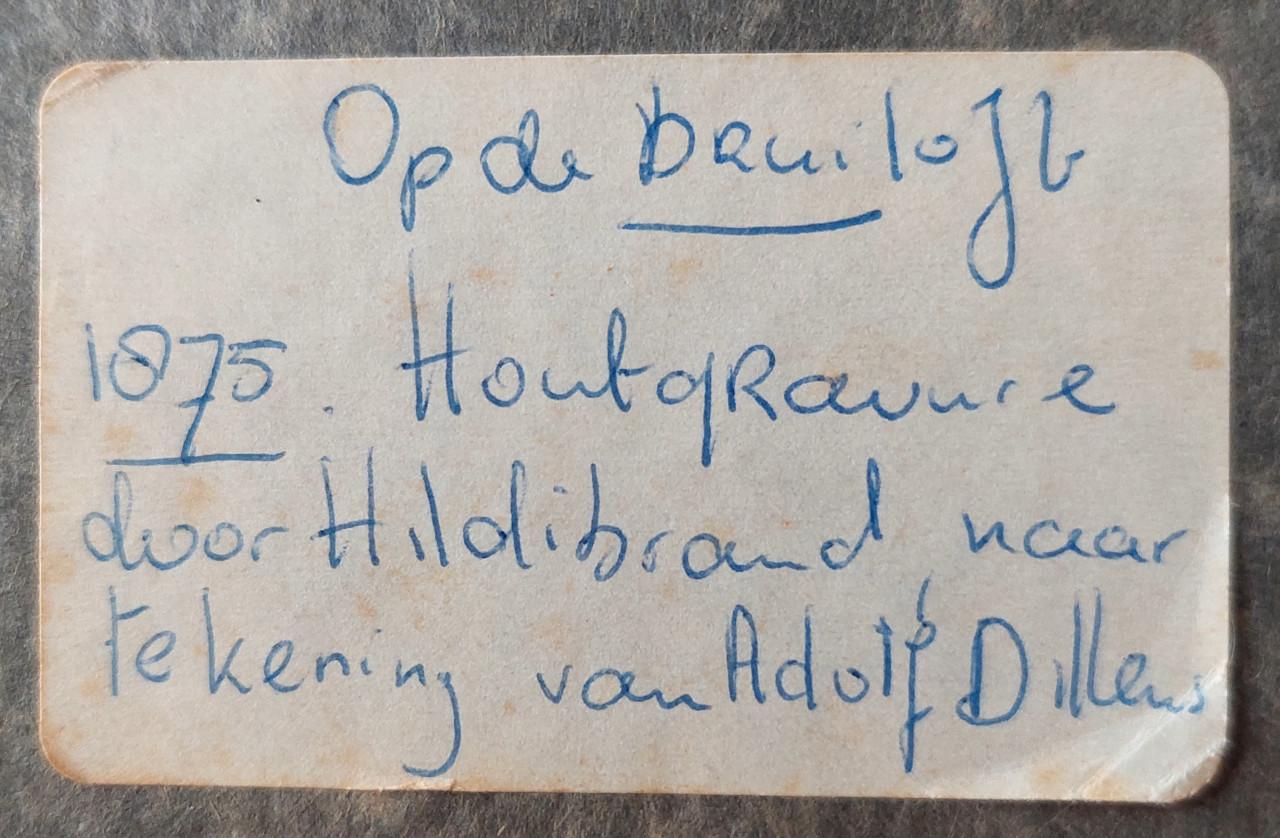 Op de bruiloft
1875. Houtgravure
door Hildibrand, naar
tekening van Adolf Dillens